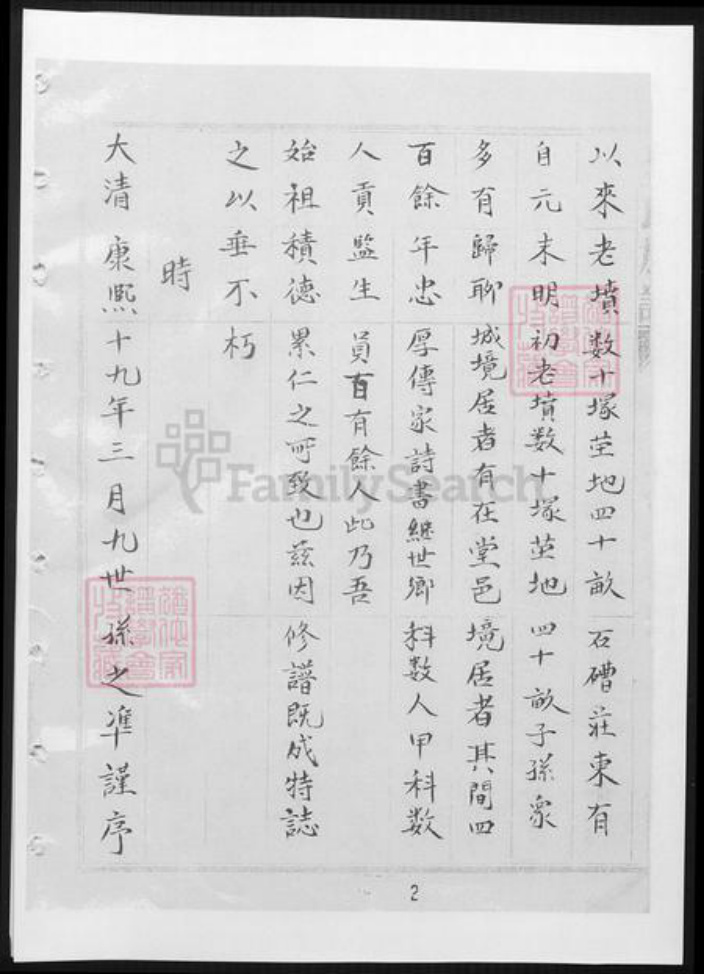 以來老墳数十塚茔地四十畝石磂莊東有
自元末明初老墳数十塚茔地四十畝子孫衆
多有歸聊城境居者有在堂邑境居者其間四
百餘年忠厚傳家詩書継世鄉科数人甲科数
人貢監生員百有餘人此乃吾
始祖積德累仁之所致也兹因修譜既成特誌
之以垂不朽
時
大清康熙十九年三月九世孫之準謹序
FamilySearch
2